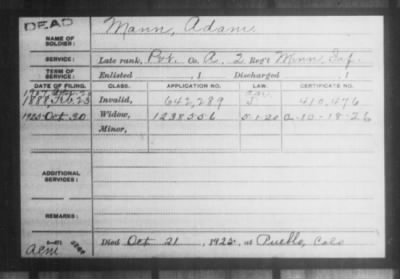 DEAD
NAME OF SOLDIER: Mann, Adam
SERVICE: Late rank, Pvt. Co. A, 2 Reg't Minn. Inf.
TERM OF SERVICE: Enlisted , 1 Discharged , 1
DATE OF FILING. CLASS. APPLICATION NO. LAW. CERTIFICATE NO.
1888, Feb. 23 Invalid, 642,289 410,476
1925 Oct. 30 Widow, 1238556 5-1-20 a-10-18-26
Minor,
ADDITIONAL SERVICES:
REMARKS:
Died Oct 21, 1925, at Pueblo, Colo